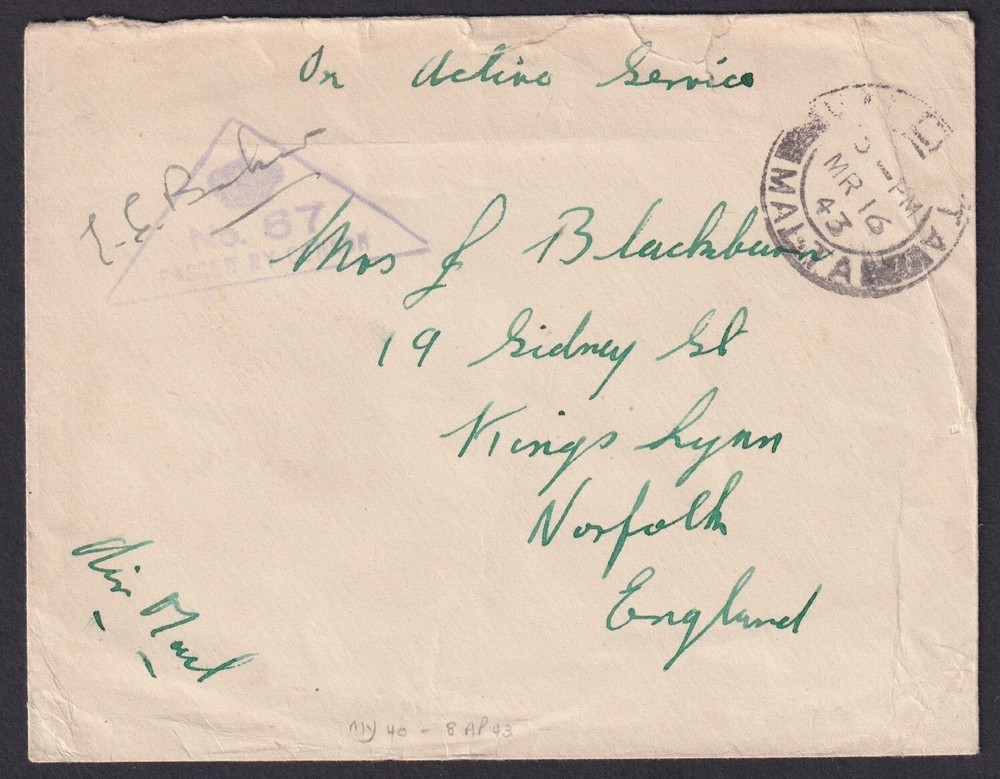 On Active Service
MALTA
PM
MR 16
43
MALTA
No. 67
PASSED BY CENSOR
Mrs J Blackburn
19 Sidney St
Kings Lynn
Norfolk
England
Air Mail
MY 40 - 8 AP 43